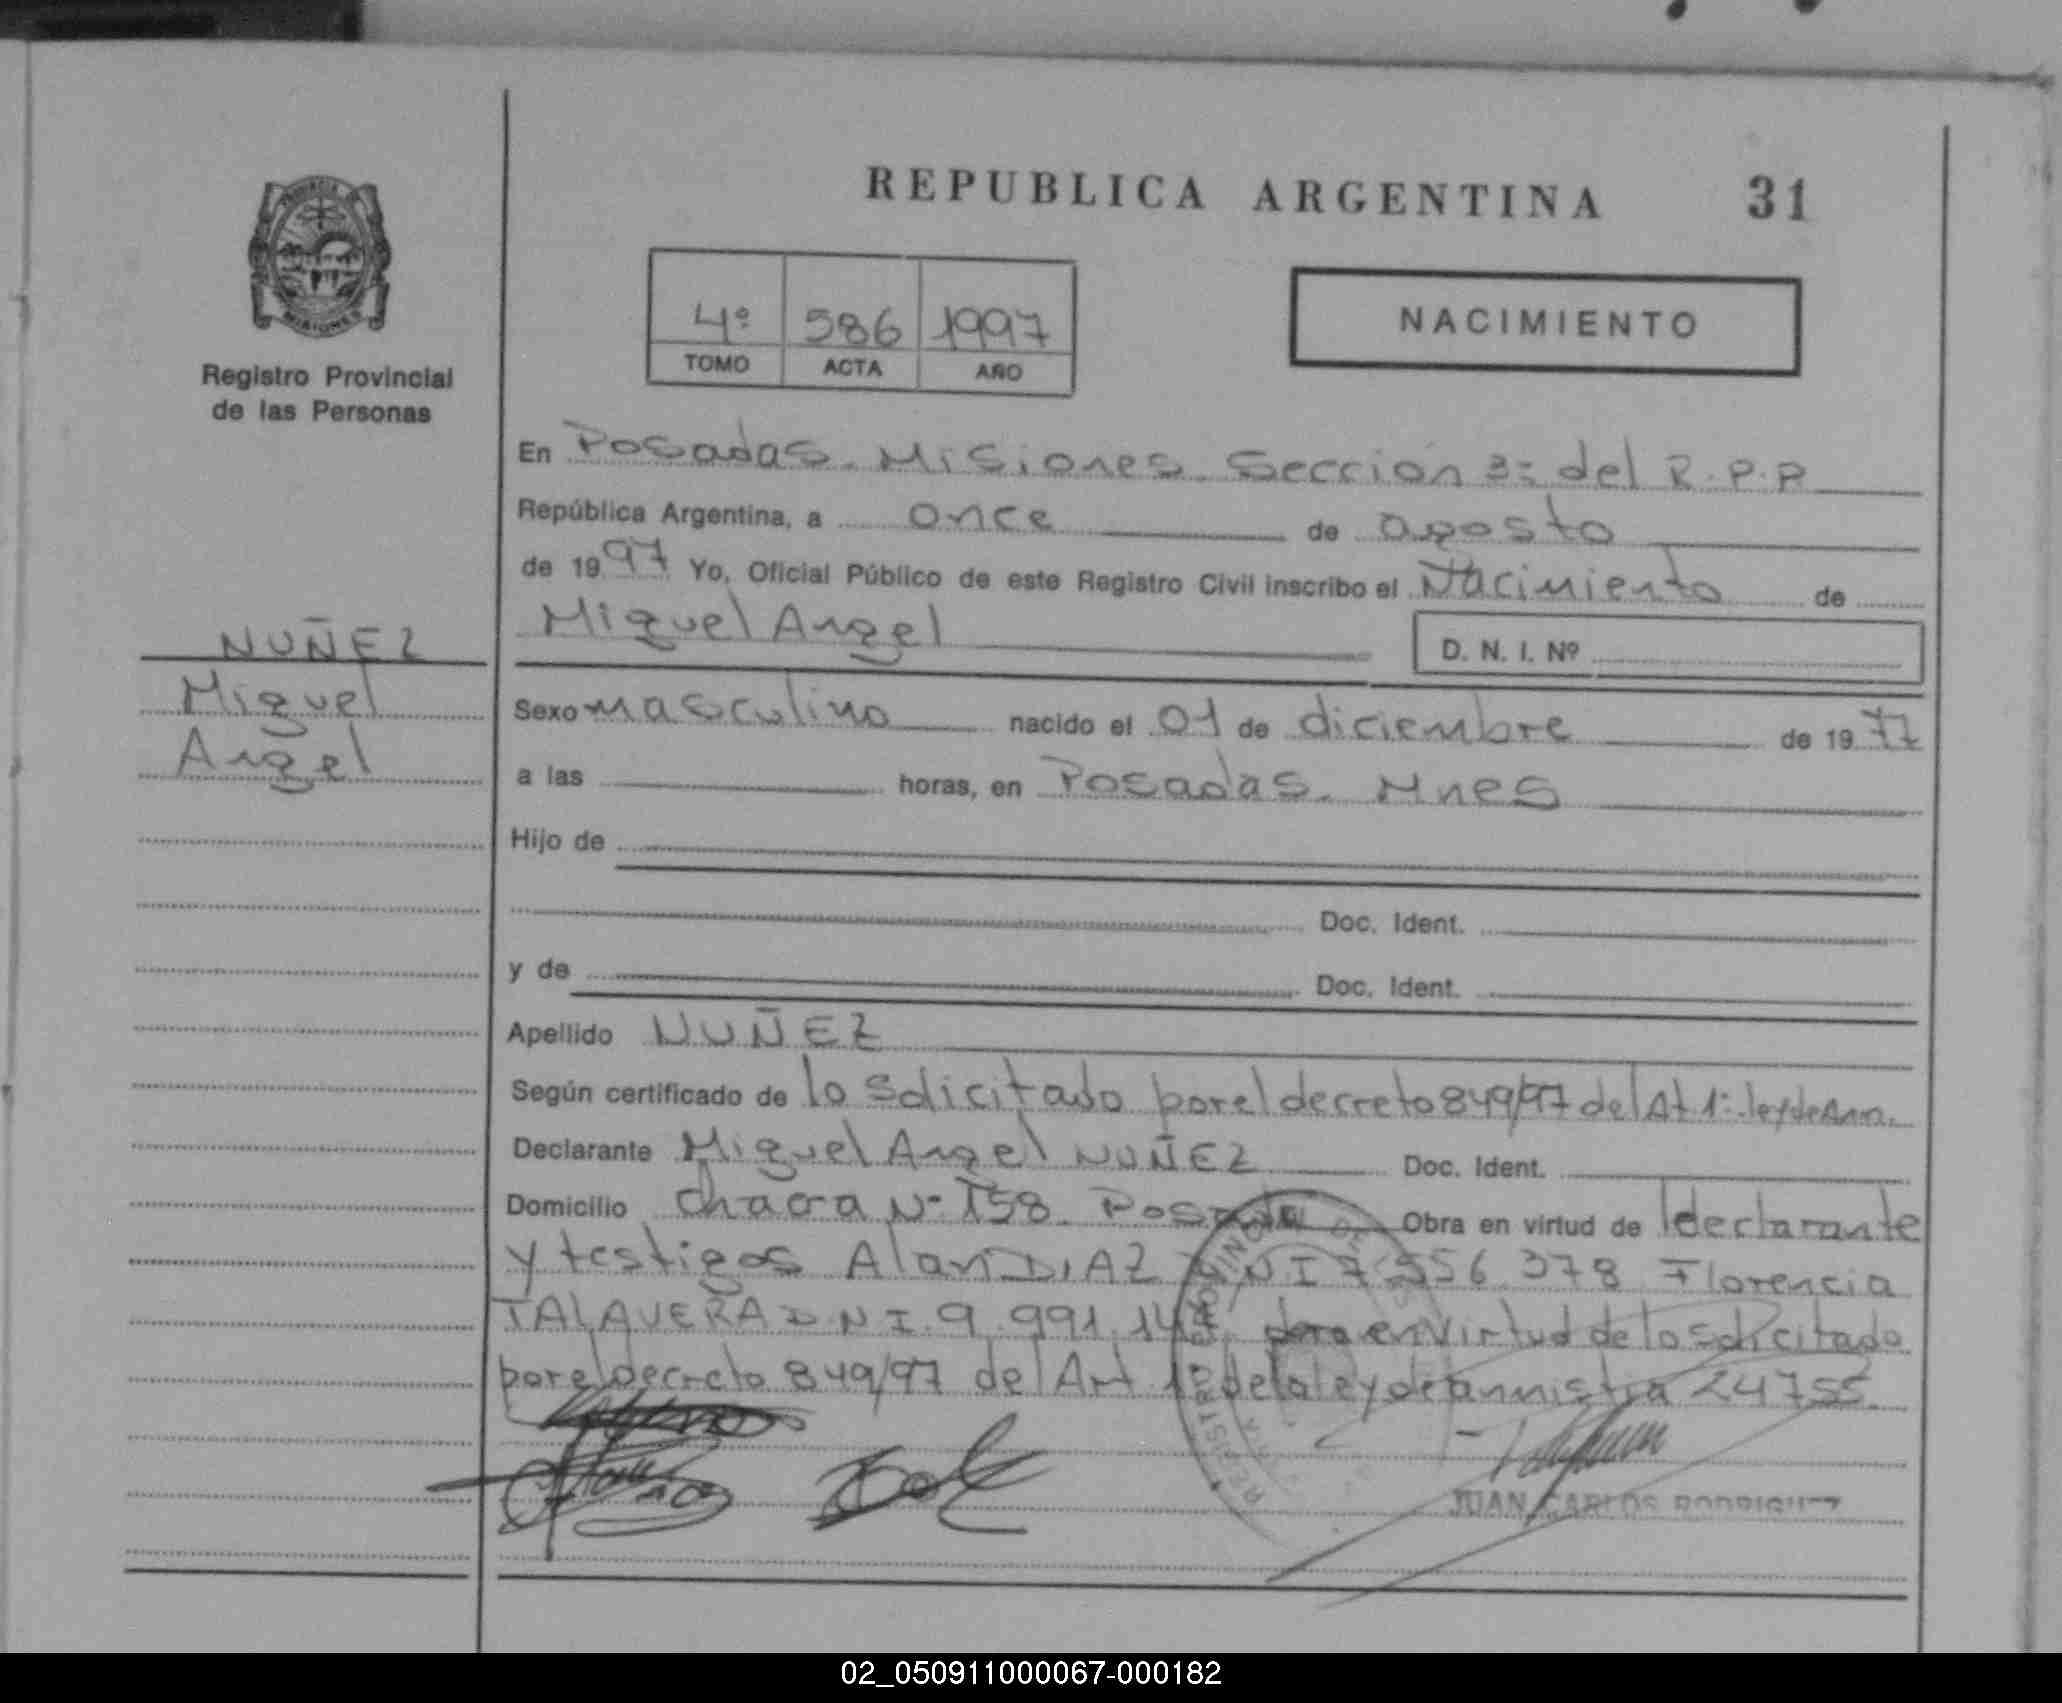 REPUBLICA ARGENTINA 31
4º 586 1997
TOMO ACTA AÑO
NACIMIENTO
PROVINCIA DE
MISIONES
Registro Provincial
de las Personas
NUÑEZ
Miguel
Angel
En Posadas. Misiones. Sección 3: del R.P.P
República Argentina, a once de agosto
de 1997 Yo, Oficial Público de este Registro Civil inscribo el Nacimiento de
Miguel Angel D. N. I. Nº
Sexo masculino nacido el 01 de diciembre de 1977
a las horas, en Posadas. Mnes
Hijo de
Doc. Ident.
y de Doc. Ident.
Apellido NUÑEZ
Según certificado de lo solicitado por el decreto 849/97 del At 1º ley de
Declarante Miguel Angel NUÑEZ Doc. Ident.
Domicilio Chacra Nº 158 Obra en virtud de l declarante
y testigos Alan DIAZ DNI 7.556.378 Florencia
TALAVERA D.N.I. 9.991. en virtud de lo solicitado
por el decreto 849/97 del Art 1º de la ley de amnistia 24755.
JUAN CARLOS RODRIGUEZ
02_050911000067-000182